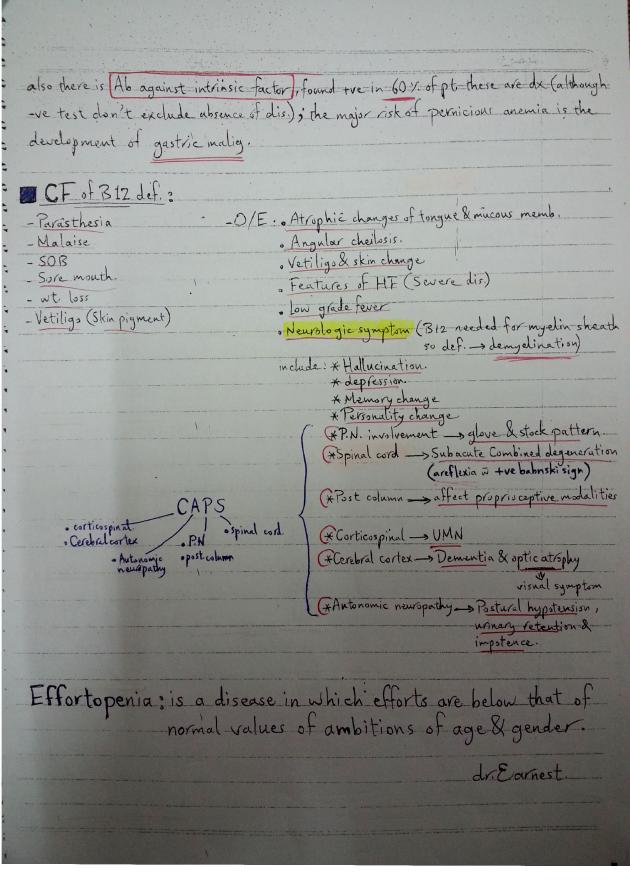 also there is Ab against intrinsic factor, found +ve in 60% of pt. these are dx (although
-ve test don't exclude absence of dis.); the major risk of pernicious anemia is the
development of gastric malig.
CF of B12 def.:
- Parasthesia
- Malaise
- SOB
- Sore mouth.
- wt loss
- Vetiligo (Skin pigment)
- O/E: • Atrophic changes of tongue & mucous memb.
• Angular cheilosis.
• Vetiligo & skin change
• Features of HF (Severe dis)
• Low grade fever
• Neurologic symptom (B12 needed for myelin sheath
so def. → demyelination)
include: * Hallucination.
* depression.
* Memory change
* Personality change
* P.N. involvement → glove & stock pattern.
* Spinal cord → Subacute Combined degeneration
(areflexia w̄ +ve babnski sign)
* Post column → affect proprioceptive modalities
* Corticospinal → UMN
* Cerebral cortex → Dementia & optic atrophy
visual symptom
* Autonomic neuropathy → Postural hypotension,
urinary retention &
impotence.
CAPS
• corticospinal
• Cerebral cortex
• Autonomic
neuropathy
• P.N
• post column
• spinal cord
Effortopenia: is a disease in which efforts are below that of
normal values of ambitions of age & gender.
dr. Earnest.